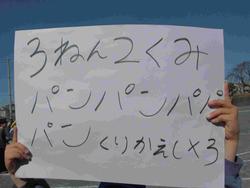 3ねん2くみ
パンパンパパ
パン くりかえし×3